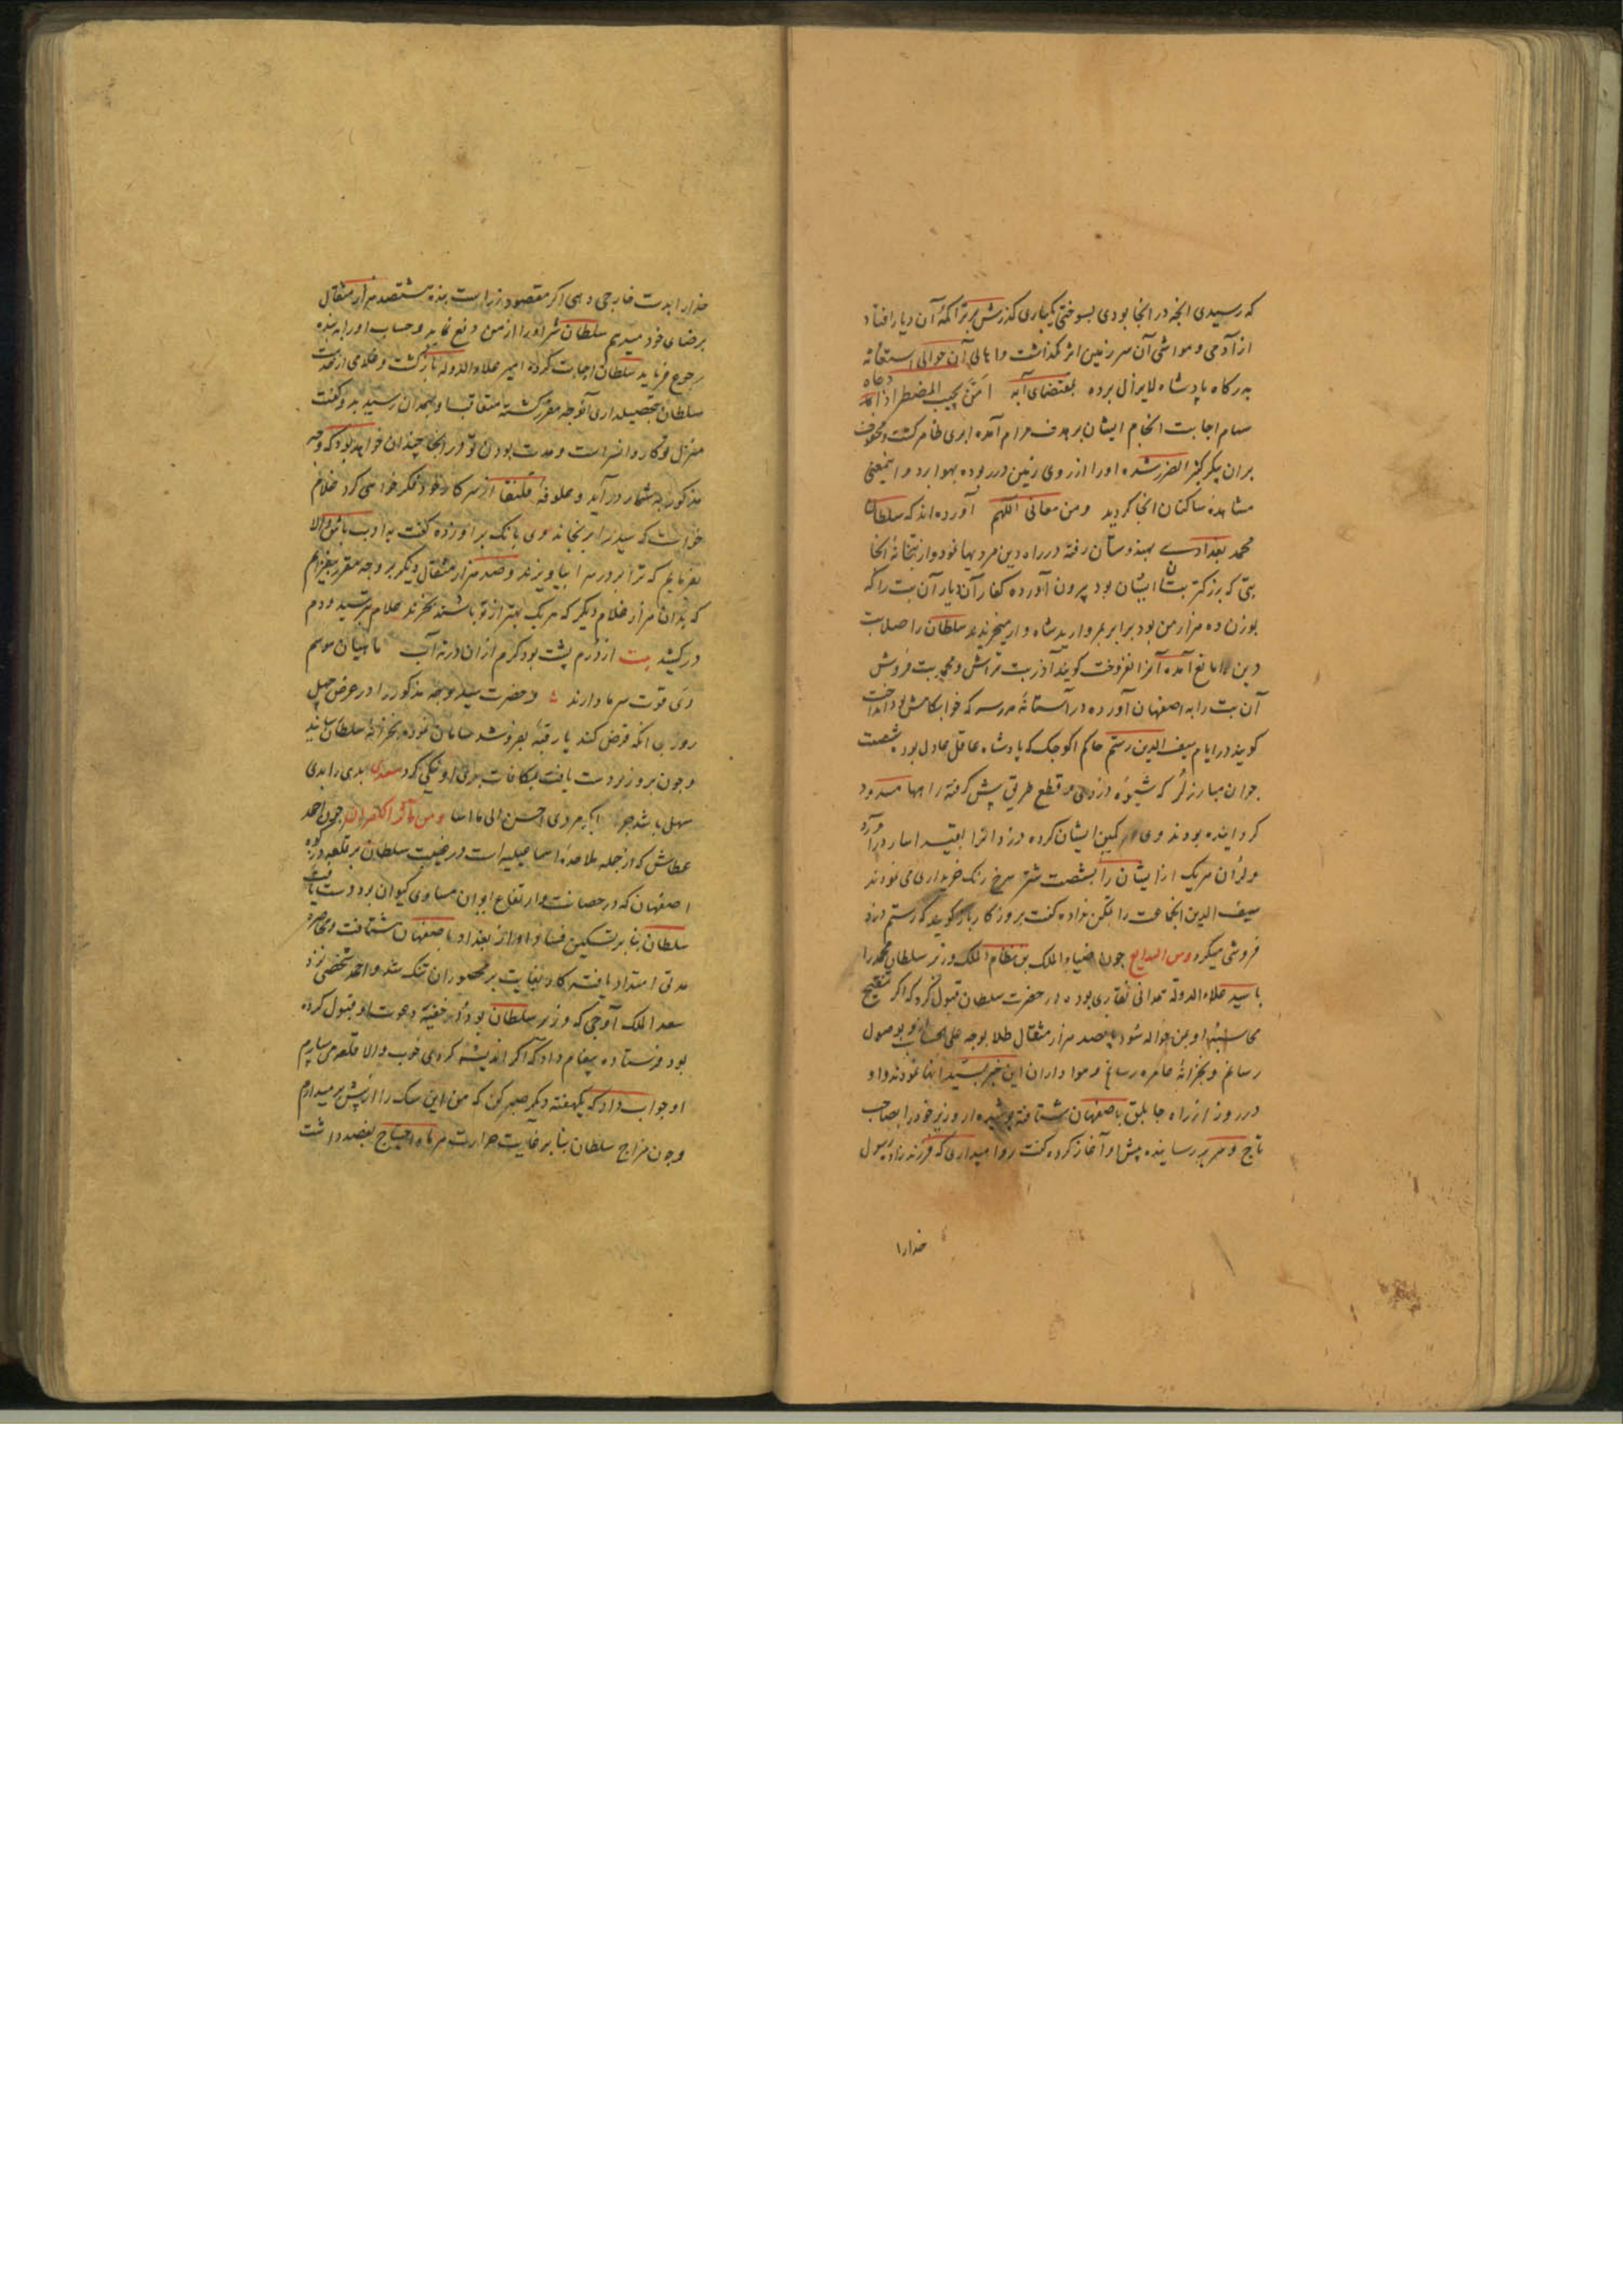 که رسیدی آنچه در آنجا بودی بسوختی یکباری گذرش بر تراکمهٔ آن دیار افتاد
از آدمی و مواشی آن سرزمین اثر نگذاشت و اهالی آن حوالی استغاثه
به درگاه پادشاه لایزال برده بمقتضای آیه امّن یجیب المضطر اذا دعاه
سهام اجابت انجام ایشان بر هدف مرام آمده ابری ظاهر گشت و
بران پیکر کثیر الضرر شده او را از روی زمین در ربوده بهوا برد و اینمعنی
مشاهدهٔ ساکنان آنجا گردید ومن معالی الکهم آورده‌اند که سلطان
محمد بغدادی بهندوستان رفته در راه دین مردیها نمود و از بتخانهٔ آنجا
بتی که بزرگتر بتان ایشان بود بیرون آورده کفار آن دیار آن بت را که
بوزن ده هزار من بود برابر بمروارید شاهوار میخریدند سلطان را صلابت
دین مانع آمده آنرا نفروخت گویند آذر بت تراش و محمد بت فروش
آن بت را به اصفهان آورده در آستانهٔ مدرسه که خوابگاهش بود انداخت
گویند در ایام سیف الدین رستم حاکم کوجک که پادشاه عاقل عادل بود شصت
جوان مبارز لُر که شیوهٔ دزدی و قطع طریق پیش گرفته راهها مسدود
گردانیده بودند وی کمین ایشان کرده دزدانرا بقید اسار درآورد
و لران هریک از ایشان را بشصت شتر سرخ رنگ خریداری می نمودند
سیف الدین آنجماعت را بکشتن نداده گفت بروزگار باز گویند که رستم دزد
فروشی میکرد ومن البدایع چون ضیاء الملک بن نظام الملک وزیر سلطان محمد را
با سید علاء الدوله همدانی نقاری بود در حضرت سلطان قبول کرد که اگر تنقیح
محاسبهٔ او بمن حواله شود پانصد هزار مثقال طلا بوجه علی الحساب بوصول
رسانم و بخزانهٔ عامره رسانم و هواداران این خبر بسید انها نمودند و او
در روز از راه جابلق باصفهان شتافته پوشیده از وزیر خود را بصاحب
تاج و سریر رسانیده پیش او آغاز کرده گفت روا میداری که فرزند زاد رسول
خدارا
خدارا بدست خارجی دهی اگر مقصود زر است بنده هشتصد هزار مثقال
برضای خود میدهم سلطان شر او را از من دفع نماید و حساب او را به بنده
رجوع فرماید سلطان اجابت کرده امیر علاء الدوله بازگشت و غلامی از خدمت
سلطان بتحصیلداری آنوجه مقرر گشته متعاقب او بهمدان رسید سید گفت
منزل تو کاروانسراست و مدت بودن تو در آنجا چندان خواهد بود که وجه
مذکور به شمار درآید و علوفه از سرکار خود فکر خواهی کرد غلام
خواست که سید را برنجاند وی بانگ بر او زده گفت به ادب باش والا
بفرمایم که ترا بر در سرا بیاویزند و صد هزار مثقال دیگر بر وجه مقرر بیفزایم
که بدان هزار غلام دیگر که هریک بهتر از تو باشند بخرند غلام بترسید و دم
درکشید بیت از درم پشت بود گرم ازان در ته آب ماهیان موسم
دی قوت سرما دارند و حضرت سید وجه مذکور را در عرض چهل
روز بی آنکه قرض کند یا رقبهٔ بفروشد سامان نموده بخزانهٔ سلطان رسانید
و چون بر وزیر دست یافت بمکافات بدی او نیکی کرد سعدی بدی را بدی
سهل باشد جزا اگر مردی احسن الی من اسا ومن مآثر الکهران چون احمد
عطاش که از جمله ملاحدهٔ اسماعیلیه است در غیبت سلطان بر قلعه در کوه
اصفهان که در حصانت و ارتفاع ایوان مساوی کیوان بر دست یافت
سلطان بنابر تسکین فساد او از بغداد باصفهان شتافت و محاصره
مدتی امتداد یافته کار بغایت بر محصوران تنگ شد و احمد شخصی نزد
سعد الملک آوجی که وزیر سلطان بود و خفیهٔ دعوت او قبول کرده
بود فرستاده پیغام داد که اگر اندیشهٔ کردی خوب والا قلعه می سپارم
او جواب داد که یکهفته دیگر صبر کن که من این سگ را از پیش برمیدارم
و چون مزاج سلطان بنابر غایت حرارت هر ماه احتیاج بفصد داشت